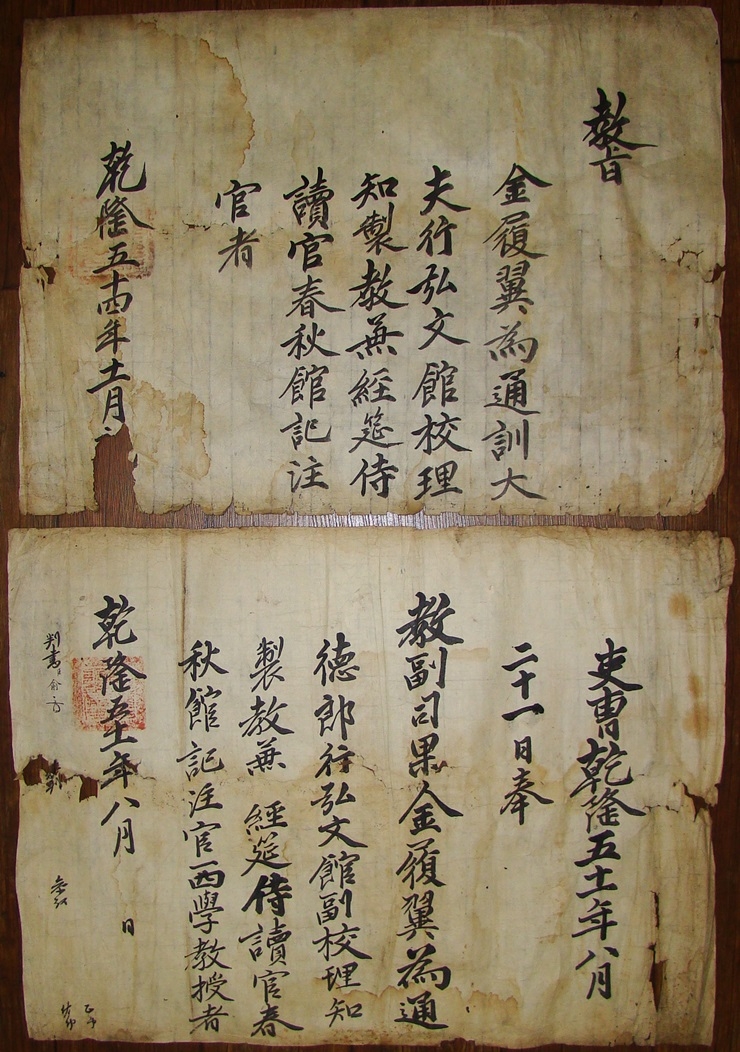 教旨
金履翼為通訓大
夫行弘文館校理
知製教兼經筵侍
讀官春秋館記注
官者
乾隆五十四年十一月
吏曹乾隆五十一年八月
二十一日奉
教副司果金履翼為通
德郎行弘文館副校理知
製教兼 經筵侍讀官春
秋館記注官西學教授者
乾隆五十一年八月 日
判書